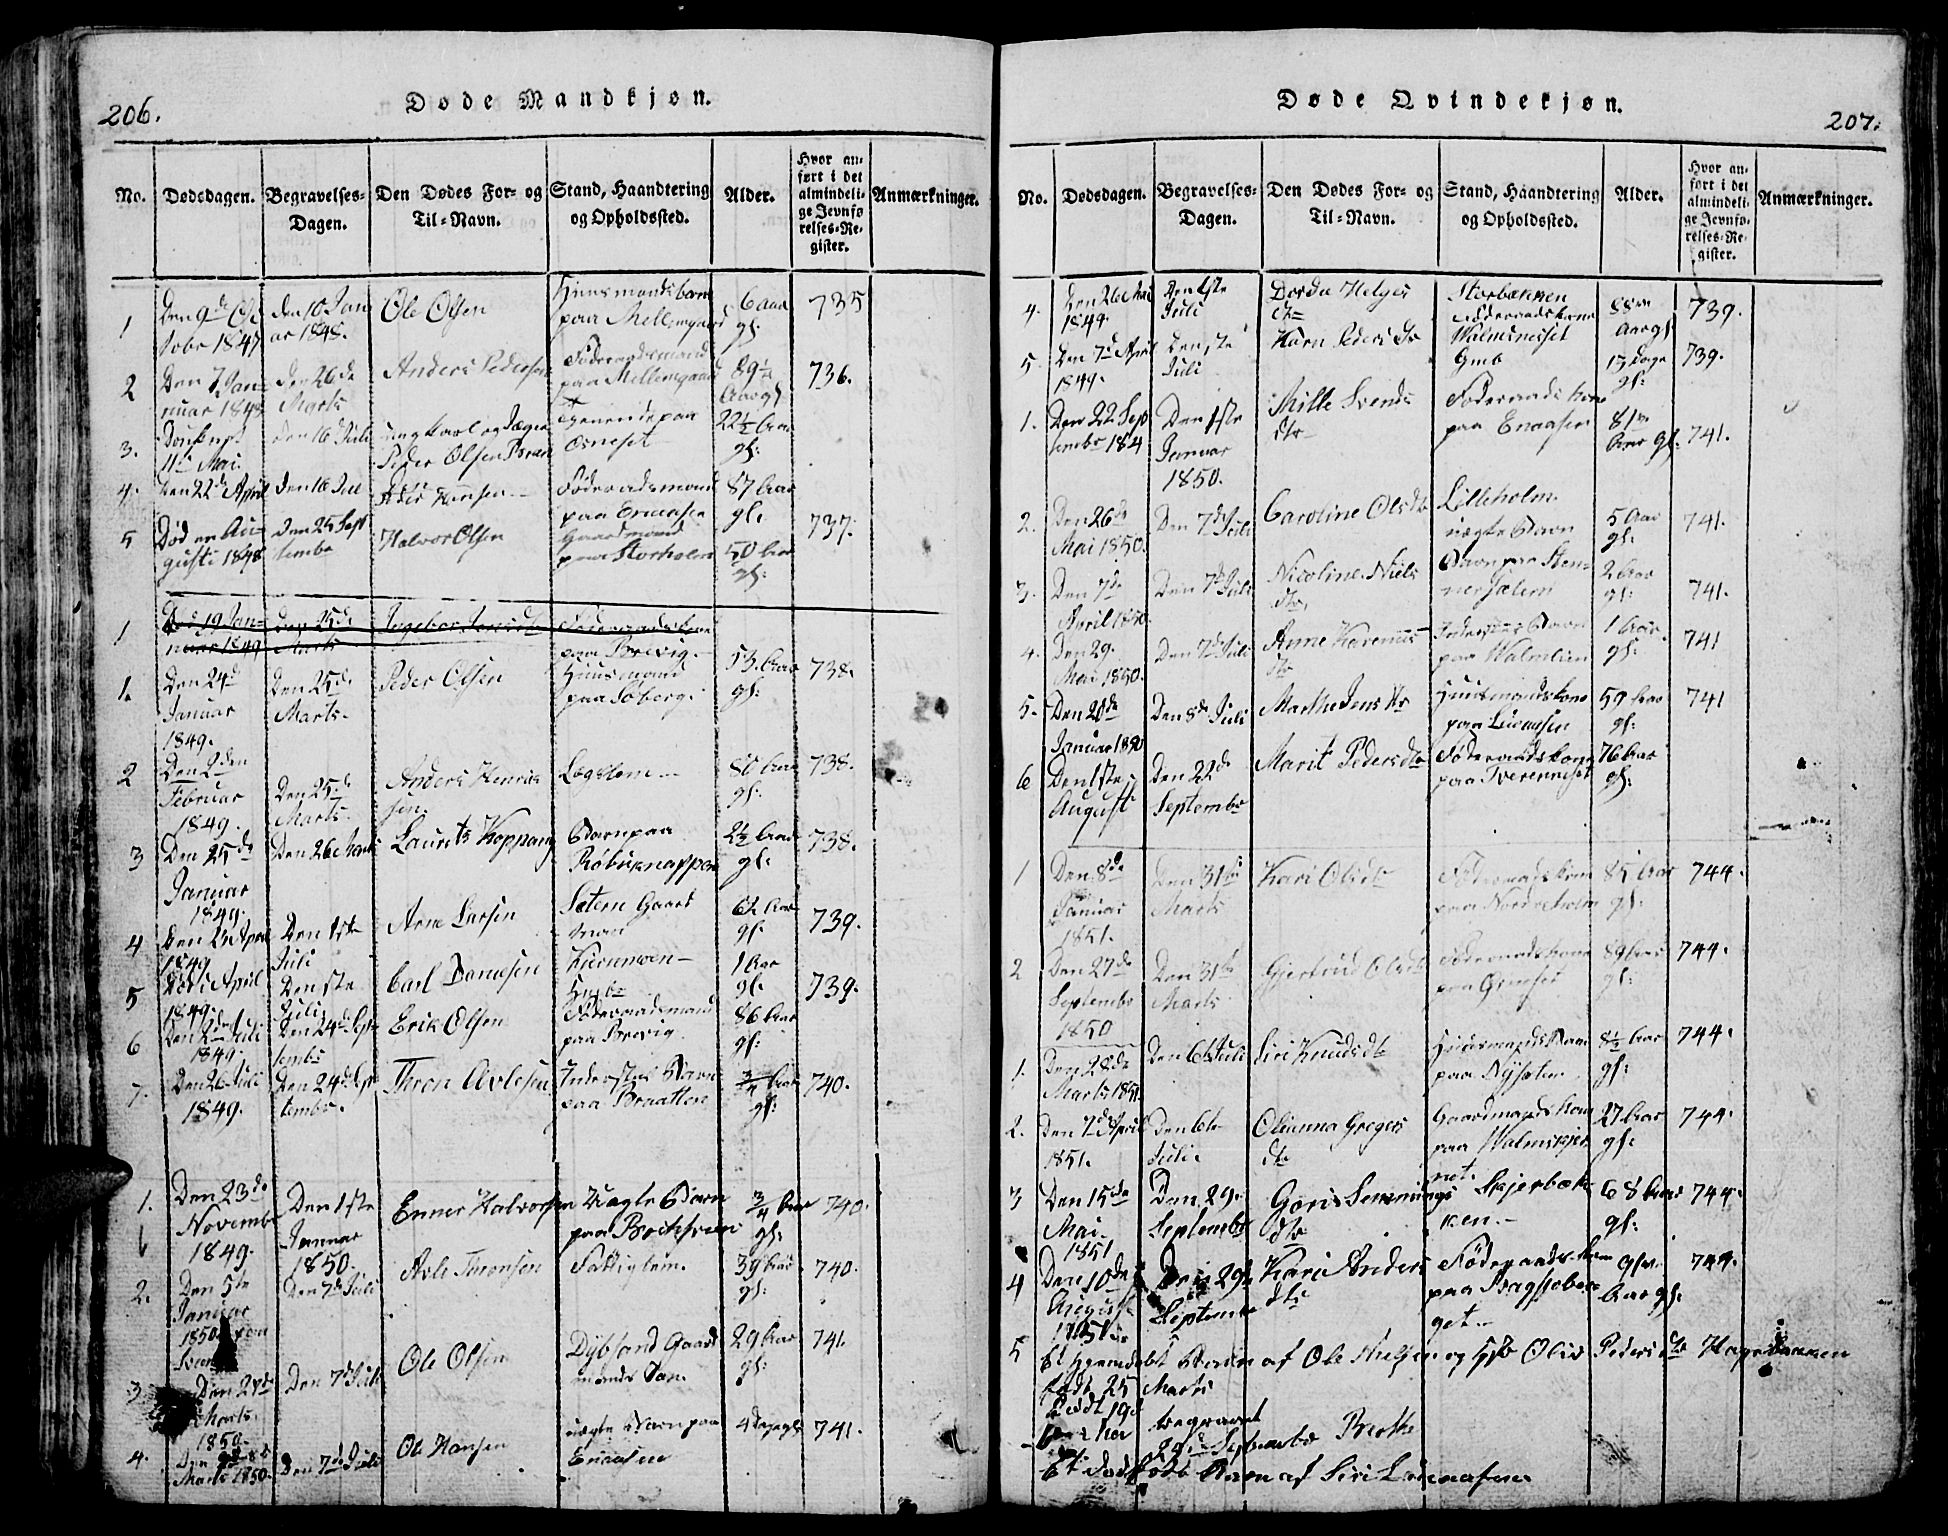 206.
Døde Mandkjøn.
No. Dødsdagen. Begravelses-Dagen. Den Dødes For- og Til-Navn. Stand, Haandtering og Opholdssted. Alder. Hvor anført i det almindelige Jevnførelses-Register. Anmærkninger.
1 Den 9de Octobr 1847 den 10 Januar 1848. Ole Olsen Huusmandsbarn paa Mellemgaard 6 Aar gl: 735
2 Den 7 Januar 1848 den 26de Marts Anders Pedersen Föderaadsmand paa Mellemgaard 89½ Aar gl 736.
3. 11te Mai den 16 Juli ungkarl og Peder Olsen paa Osneset 22½ Aar gl:
4. den 22de April den 16 Juli Peder Hansen Föderaadsmand paa Enaasen 87 Aar gl:
5 Död en Augusti 1848 den 25 September Halvor Olsen Gaardmand paa Storholm 50 Aar gl: 737.
1 Död 19 Januar 1849 den 25de Marts Ingebor Jensdtr Föderaadskone paa Brevig.
1. Den 24d Januar 1849. Den 25de Marts. Peder Olsen Huusmand paa Soberg. 53 Aar gl: 738.
2 Den 2den Februar 1849. Den 25de Marts. Anders Henriksen Lægslem 80 Aar gl: 738.
3 Den 25de Januar 1849. Den 26 Marts Laurits Koppang Barn paa Röbukknappen 2½ Aar gl: 738.
4 Den 21 April 1849 Den 1ste Juli Arne Larsen Sætern Gaardman 62 Aar gl. 739.
5 Död i April 1849. Den 1ste Juli Carl Danielsen Kiernmoen 1 Aar gl. 739.
6 Den 2den Juli 1849. Den 24de September Erik Olsen Föderaadsmand paa Brevig. 86 Aar gl:
7. Den 26 Juli 1849. Den 24de September. Thron Avlesen Inderstes Barn paa Braatten ¾ Aar gl: 740.
1. Den 23de November 1849. Den 1ste Januar 1850. Enner Halvorsen Uægte Barn paa ¾ Aar gl: 740.
2. Den 5te Januar 1850 Den 7de Juli Avle Torensen Fattiglem. 39 Aar gl: 740.
3 Den 27de Marts. 1850. Den 7de Juli Ole Olsen Dybsand Gaardmands Sön. 29 Aar gl: 741.
4. Den Marts 1850. Den 7de Juli Ole Hansen uægte Barn paa Enaasen 4 dage gl 741.
207.
Døde Qvindekjøn.
No. Dødsdagen. Begravelses-Dagen. Den Dødes For- og Til-Navn. Stand, Haandtering og Opholdssted. Alder. Hvor anført i det almindelige Jevnførelses-Register. Anmærkninger.
4. Den 26 Mai 1849. Den 1ste Juli Dordu Helges dtr Storbækken Föderaadskone 88 Aar gl 739.
5. Den 7de April 1849. Den 1ste Juli Karn Peders dtr Walmsneset Gmb 13 dage gl: 739.
1. Den 22 September 184 Den 1ste Januar 1850. Mille Svends dtr Föderaads kone paa Enaasen 81 Aar gl: 741.
2. Den 26de Mai 1850. Den 7de Juli Caroline Olsdtr Lilleholm uægte Barn 5 Aar gl: 741.
3. Den 7de April 1850. Den 7de Juli Nicoline Niels dtr. Barn paa Stennersætern 2 Aar gl: 741.
4. Den 29. Mai 1850. Den 7de Juli Anne Karenius dtr Inderstes Barn paa Walmlien 1 Aar. gl: 741
5. Den 20de Januar 1850 Den 8de Juli Marthe Jens dtr Huusmandskone paa Lueaasen 59 Aar gl: 741
6 Den 1ste August Den 22de September Marit Pedersdtr Föderaadskone paa Tverenneset 76 Aar gl:
1 Den 8de Januar 1851. Den 31te Marts Kari Olsdtr Föderaadskone paa Nordreholm 85 Aar gl: 744.
2 Den 27de September 1850 Den 31te Marts Gjertrud Olsdtr Föderaadskone paa Grimset 89 Aar gl: 744.
1. Den 28de Marts 1851. Den 6te Juli Siri Knudsdtr Huusmands Barn paa Nysæten. 8½ Aar gl: 744.
2. Den 7de April 1851. Den 6te Juli. Olianna Gregers dtr Gaardmands kone paa Walmskjernet. 27 Aar gl: 744.
3 Den 15de Mai. 1851 Den 29. September Goris Semmings dtr Skjerbækken. 68 Aar gl: 744.
4 Den 10de August 1851 Den 29de September Kari Anders dtr Föderaadskone paa Bagstobergget. 91 Aar gl: 744.
5 Et hjemdöbt Barn af Ole Nielsen og Hst Oliv Peders dtr Hagebakken
född 25 Marts
Död 19d begravet
29de September
Et dödfödt Barn af Siri Lueaasen